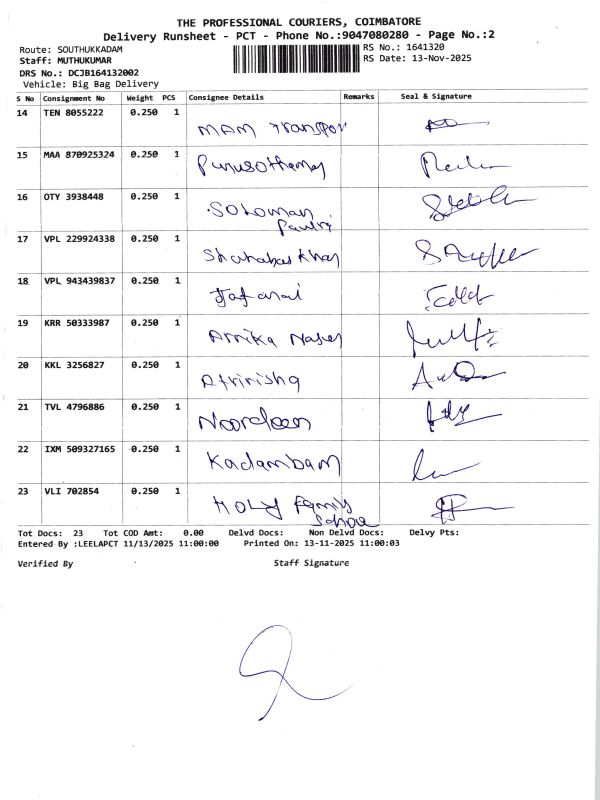 THE PROFESSIONAL COURIERS, COIMBATORE
Delivery Runsheet - PCT - Phone No.:9047080280 - Page No.:2
Route: SOUTHUKKADAM
RS No.: 1641320
Staff: MUTHUKUMAR
RS Date: 13-Nov-2025
DRS No.: DCJB164132002
Vehicle: Big Bag Delivery
S No Consignment No Weight PCS Consignee Details Remarks Seal & Signature
14 TEN 8055222 0.250 1 MAM Transpor
15 MAA 870925324 0.250 1
16 OTY 3938448 0.250 1 Solomon
17 VPL 229924338 0.250 1 Khan
18 VPL 943439837 0.250 1
19 KRR 50333987 0.250 1
20 KKL 3256827 0.250 1
21 TVL 4796886 0.250 1 Noordeen
22 IXM 509327165 0.250 1 Kadambam
23 VLI 702854 0.250 1 Holy Family
Tot Docs: 23 Tot COD Amt: 0.00 Delvd Docs: Non Delvd Docs: Delvy Pts:
Entered By :LEELAPCT 11/13/2025 11:00:00 Printed On: 13-11-2025 11:00:03
Verified By Staff Signature